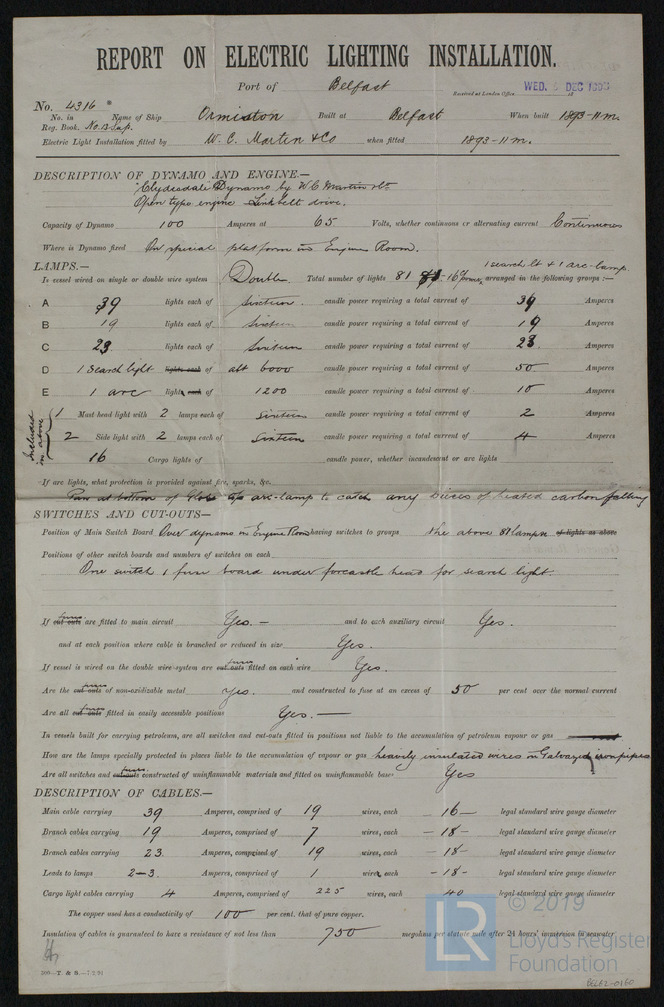 REPORT ON ELECTRIC LIGHTING INSTALLATION.
Port of Belfast Received at London Office WED. DEC
No. 4316
No. in Reg. Book. Name of Ship Ormiston Built at Belfast When built 1893-11m.
Electric Light Installation fitted by W. C. Martin & Co when fitted 1893-11m.
DESCRIPTION OF DYNAMO AND ENGINE.—
"Clydesdale" Dynamo by W C Martin & Co.
Open type engine Link belt drive.
Capacity of Dynamo 100 Amperes at 65 Volts, whether continuous or alternating current Continuous
Where is Dynamo fixed On special platform in Engine Room.
LAMPS.—
1 search lt & 1 arc-lamp.
Is vessel wired on single or double wire system Double Total number of lights 81 arranged in the following groups :—
A 39 lights each of Sixteen candle power requiring a total current of 39 Amperes
B 19 lights each of Sixteen candle power requiring a total current of 19 Amperes
C 23 lights each of Sixteen candle power requiring a total current of 23 Amperes
D 1 Search light lights each of abt 6000 candle power requiring a total current of 50 Amperes
E 1 arc lights each of 1200 candle power requiring a total current of 10 Amperes
Included in above
1 Mast head light with 2 lamps each of sixteen candle power requiring a total current of 2 Amperes
2 Side light with 2 lamps each of sixteen candle power requiring a total current of 4 Amperes
16 Cargo lights of candle power, whether incandescent or arc lights
If arc lights, what protection is provided against fire, sparks, &c.
Pan at bottom of globe of arc-lamp to catch any pieces of heated carbon falling
SWITCHES AND CUT-OUTS—
Position of Main Switch Board Over dynamo in Engine Room having switches to groups the above 81 lamps of lights as above
Positions of other switch boards and numbers of switches on each
One switch & fuse board under forcastle head for search light.
If cut outs fuses are fitted to main circuit Yes.— and to each auxiliary circuit Yes.
and at each position where cable is branched or reduced in size Yes.
If vessel is wired on the double wire system are cut outs fuses fitted on each wire Yes.
Are the cut outs fuses of non-oxidizable metal yes. and constructed to fuse at an excess of 50 per cent over the normal current
Are all cut outs fuses fitted in easily accessible positions Yes.—
In vessels built for carrying petroleum, are all switches and cut-outs fitted in positions not liable to the accumulation of petroleum vapour or gas
How are the lamps specially protected in places liable to the accumulation of vapour or gas heavily insulated wires in Galvanized iron pipes
Are all switches and cut outs fuses constructed of uninflammable materials and fitted on uninflammable bases Yes
DESCRIPTION OF CABLES.—
Main cable carrying 39 Amperes, comprised of 19 wires, each 16 legal standard wire gauge diameter
Branch cables carrying 19 Amperes, comprised of 7 wires, each 18 legal standard wire gauge diameter
Branch cables carrying 23 Amperes, comprised of 19 wires, each 18 legal standard wire gauge diameter
Leads to lamps 2-3. Amperes, comprised of 1 wire, each 18 legal standard wire gauge diameter
Cargo light cables carrying 4 Amperes, comprised of 225 wires, each 40 legal standard wire gauge diameter
The copper used has a conductivity of 100 per cent. that of pure copper.
Insulation of cables is guaranteed to have a resistance of not less than 750 megohms per statute mile after 24 hours' immersion in seawater
LR © 2019 Lloyd's Register Foundation